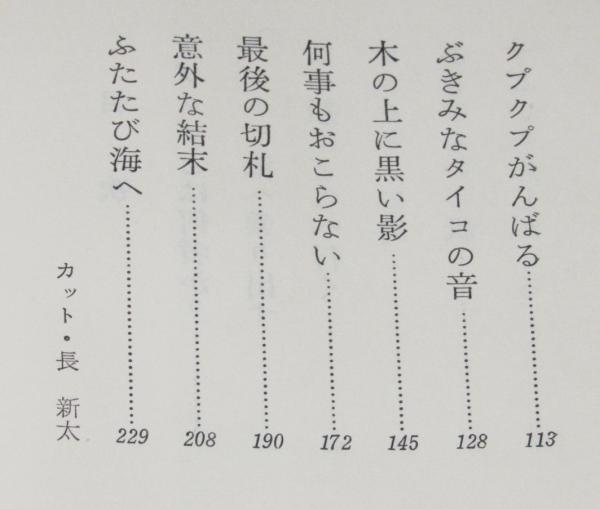 クプクプがんばる……………………113
ぶきみなタイコの音………………128
木の上に黒い影……………………145
何事もおこらない…………………172
最後の切札…………………………190
意外な結末…………………………208
ふたたび海へ………………………229
カット・長　新太